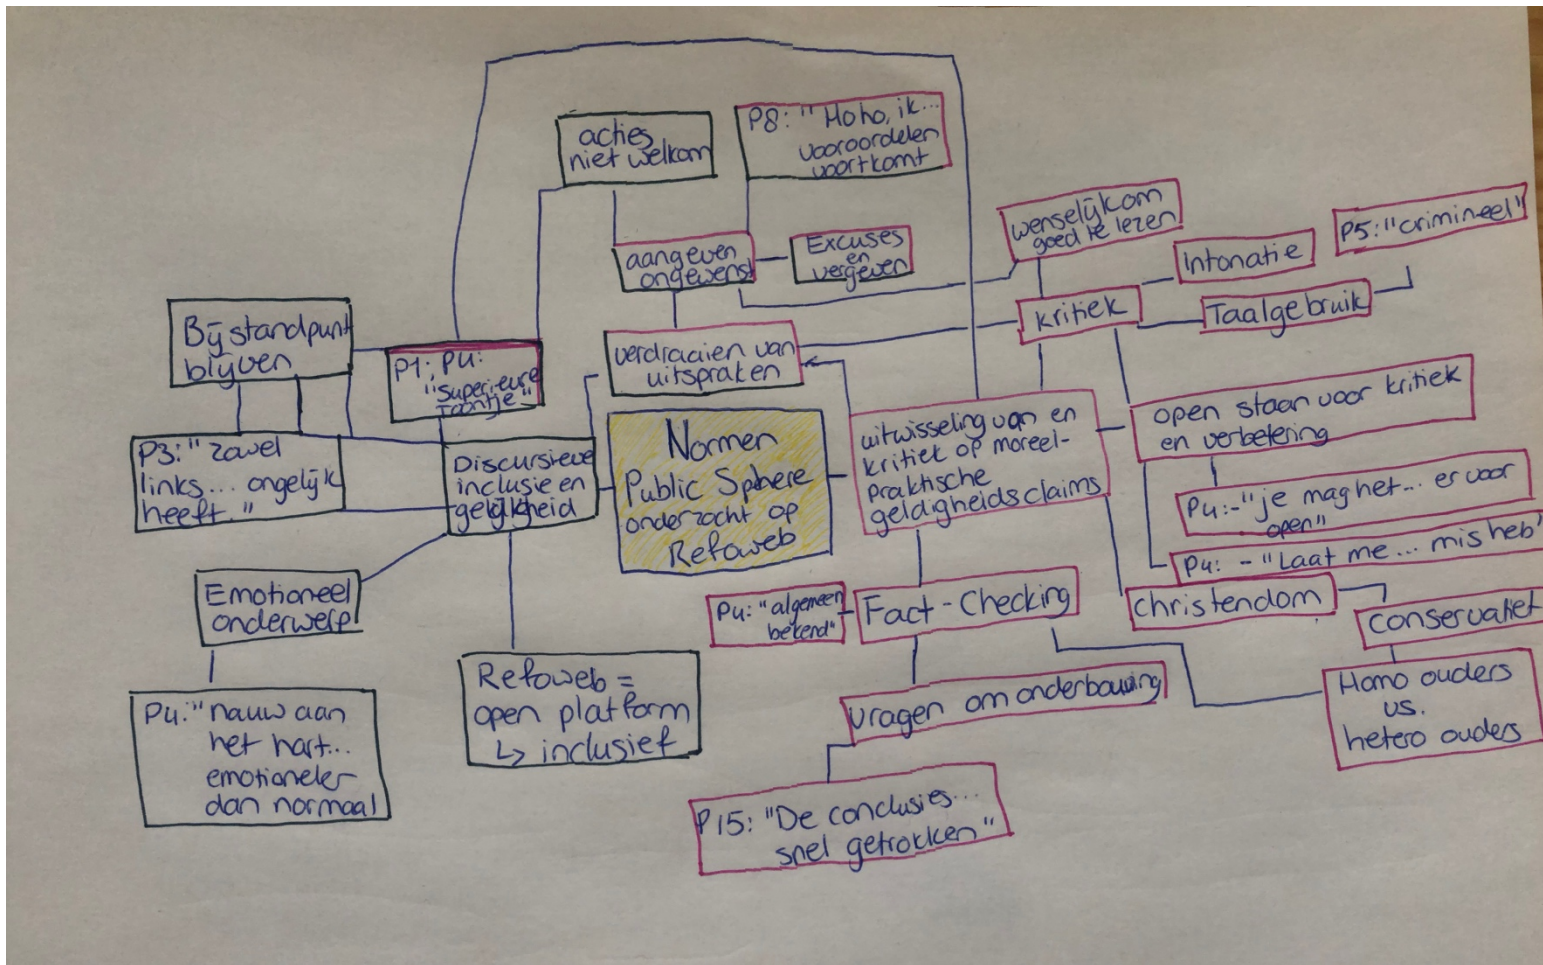 acties
niet welkom
P8: "Hoho, ik...
vooroordelen
voortkomt
wenselijk om
goed te lezen
P5: "crimineel"
Intonatie
aangeven
ongewenst
Excuses
en
vergeven
kritiek
Taalgebruik
Bij standpunt
blijven
P1: P4:
"Superieure
toontje"
verdraaien van
uitspraken
open staan voor kritiek
en verbetering
P3: "zowel
links... ongelijk
heeft."
Discursieve
inclusie en
gelijkheid
Normen
Public Sphere
onderzocht op
Refoweb
uitwisseling van en
kritiek op moreel-
praktische
geldigheidsclaims
P4: - "je mag het... er voor
open"
P4: - "Laat me... mis heb"
Emotioneel
onderwerp
P4: "algemeen
bekend"
Fact-Checking
christendom
conservatief
P4: "nauw aan
het hart...
emotioneler
dan normaal
Refoweb =
open platform
↳ inclusief
vragen om onderbouwing
Homo ouders
vs.
hetero ouders
P15: "De conclusies...
snel getrokken"